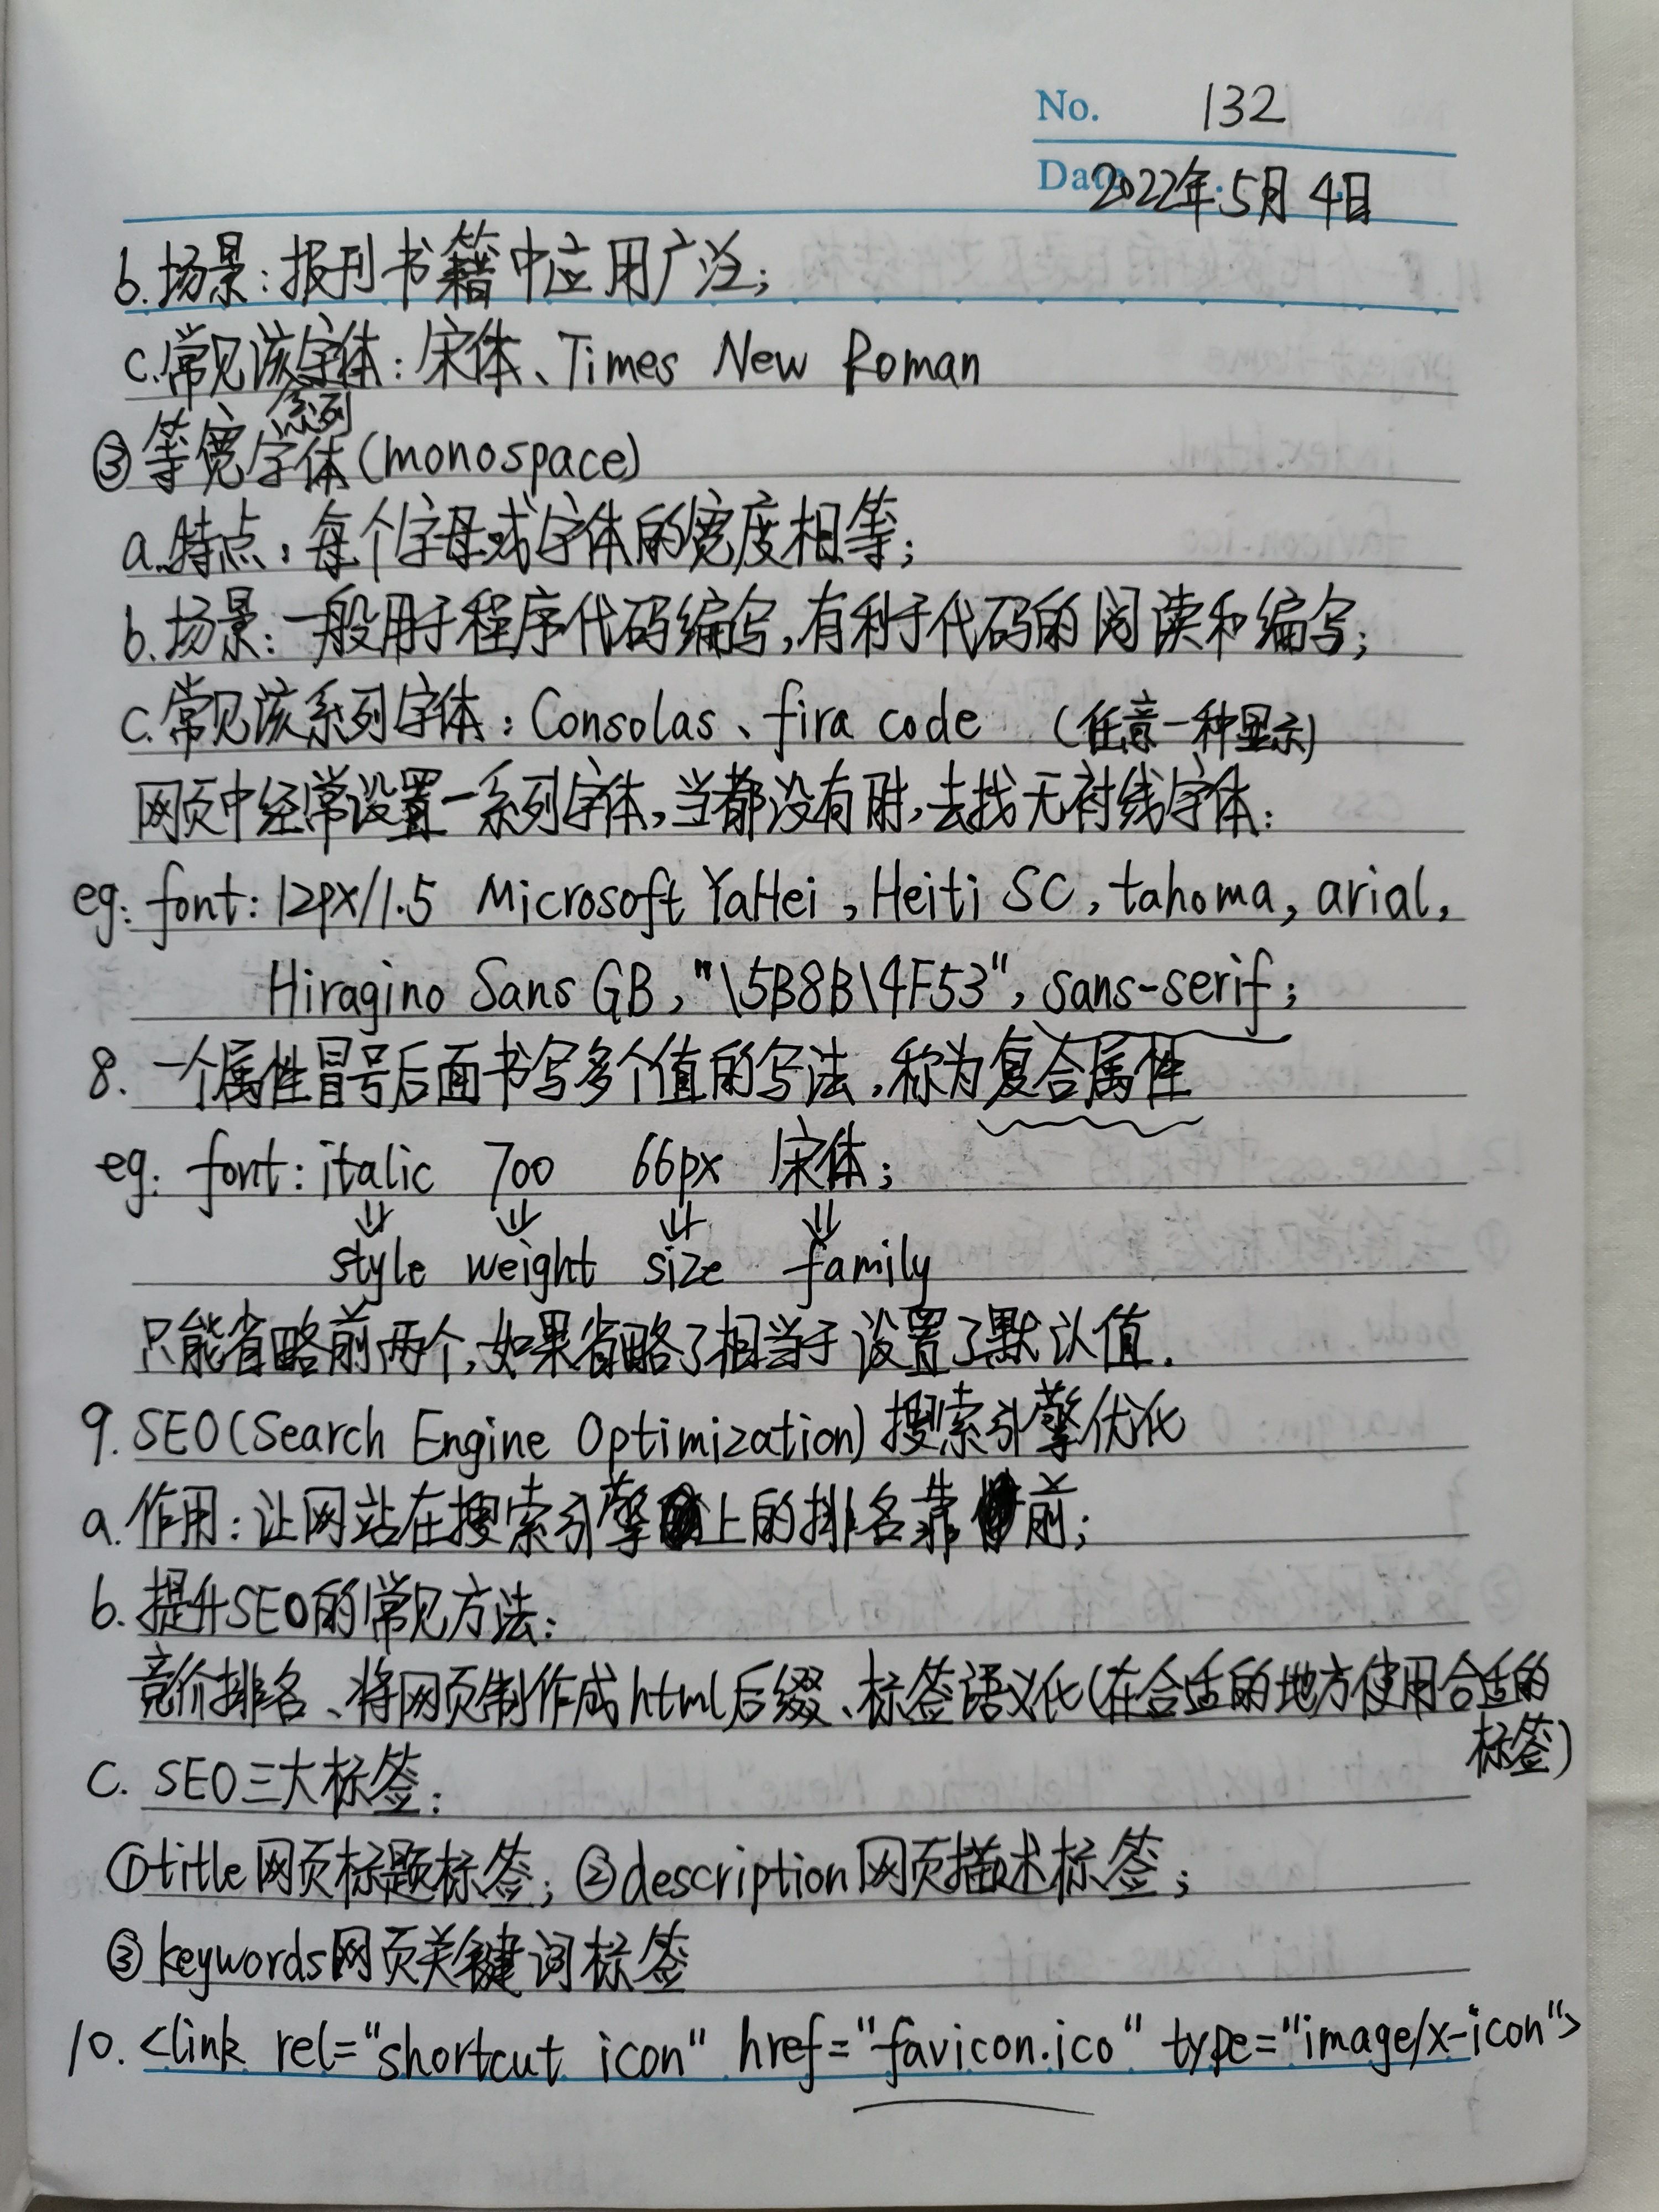 No. 132
Date 2022年5月4日
b.场景:报刊书籍中应用广泛;
c.常见该系列字体:宋体、Times New Roman
③等宽字体(monospace)
a.特点:每个字母或字体的宽度相等;
b.场景:一般用于程序代码编写,有利于代码的阅读和编写;
c.常见该系列字体:Consolas、fira code (任意一种显示)
网页中经常设置一系列字体,当都没有时,去找无衬线字体:
eg: font:12px/1.5 Microsoft YaHei,Heiti SC,tahoma,arial,
Hiragino Sans GB,"\5B8B\4F53",sans-serif;
8. 一个属性冒号后面书写多个值的写法,称为复合属性
eg: font:italic 700 66px 宋体;
⇓ ⇓ ⇓ ⇓
style weight size family
只能省略前两个,如果省略了相当于设置了默认值.
9. SEO(Search Engine Optimization)搜索引擎优化
a.作用:让网站在搜索引擎上的排名靠前;
b.提升SEO的常见方法:
竞价排名、将网页制作成html后缀、标签语义化(在合适的地方使用合适的
标签)
C. SEO三大标签:
①title网页标题标签;②description网页描述标签;
③keywords网页关键词标签
10. <link rel="shortcut icon" href="favicon.ico" type="image/x-icon">